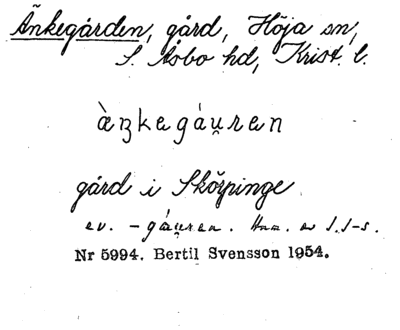 Änkegården, gård, Höja sn,
S. Åsbo hd, Krist. l.
àŋkegáu̯ren
gård i Skörpinge
ev. -gáu̯ren.
Nr 5994. Bertil Svensson 1954.